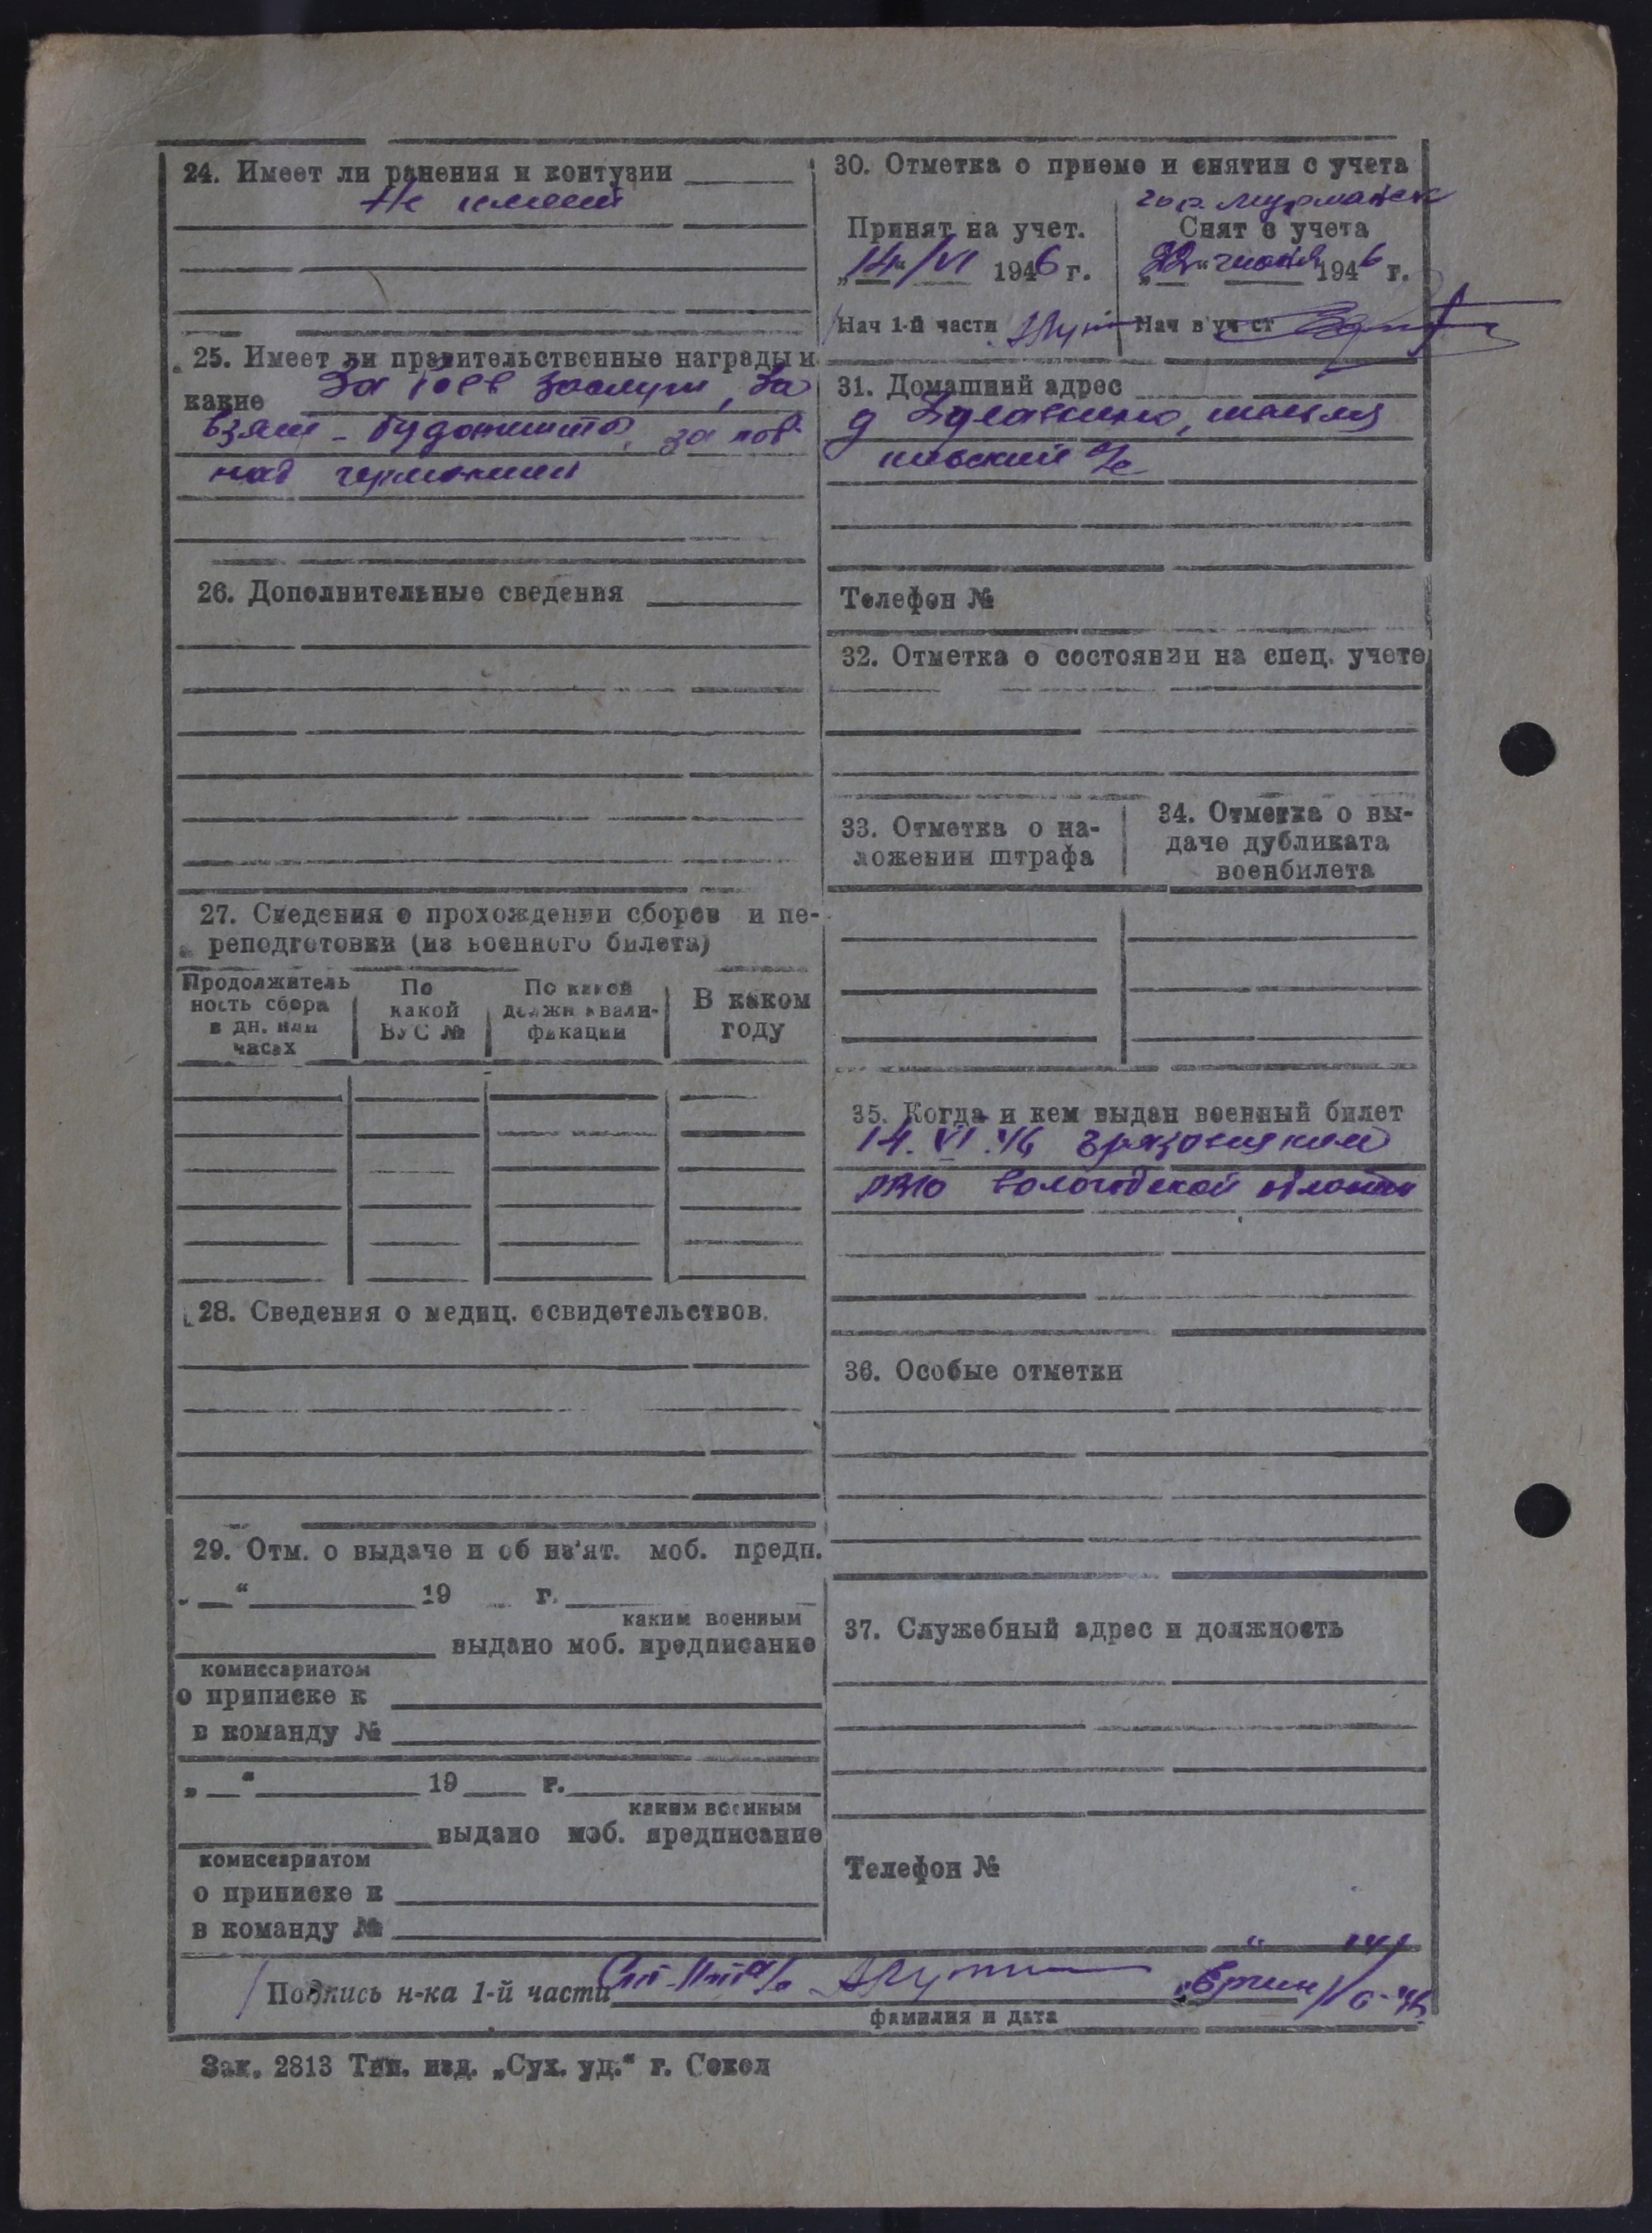 24. Имеет ли ранения и контузии
Не имеет
25. Имеет ли правительственные награды и
какие За боев заслуги, За
взят-Будопешта, за поб
над германией
26. Дополнительные сведения
27. Сведения о прохождении сборов и пе-
реподготовки (из военного билета)
Продолжитель
ность сбора
в дн. или
часах
По
какой
ВУС №
По какой
должн квали-
фикации
В каком
году
28. Сведения о медиц. освидетельствов.
29. Отм. о выдаче и об из'ят. моб. предп.
„ “ 19 г.
каким военным
выдано моб. предписание
комиссариатом
о приписке к
в команду №
„ “ 19 г.
каким военным
выдано моб. предписание
комиссариатом
о приписке к
в команду №
30. Отметка о приеме и снятии с учета
гор. Мурманск
Принят на учет.
„14“/VI 1946 г.
Нач 1-й части
Снят с учета
„22“ июня 1946 г.
Нач в уч ст
31. Домашний адрес
д
с/с
Телефон №
32. Отметка о состоянии на спец. учете
33. Отметка о на-
ложении штрафа
34. Отметка о вы-
даче дубликата
военбилета
35. Когда и кем выдан военный билет
14.VI.46 Грязовецким
РВК Вологодской области
36. Особые отметки
37. Служебный адрес и должность
Телефон №
Подпись н-ка 1-й части
фамилия и дата
Зак. 2813 Тип. изд. „Сух. уд.“ г. Сокол